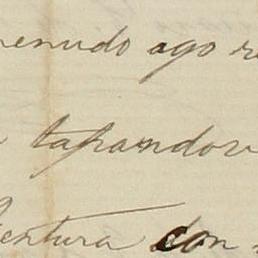 menudo ago r
tapandov
entura con